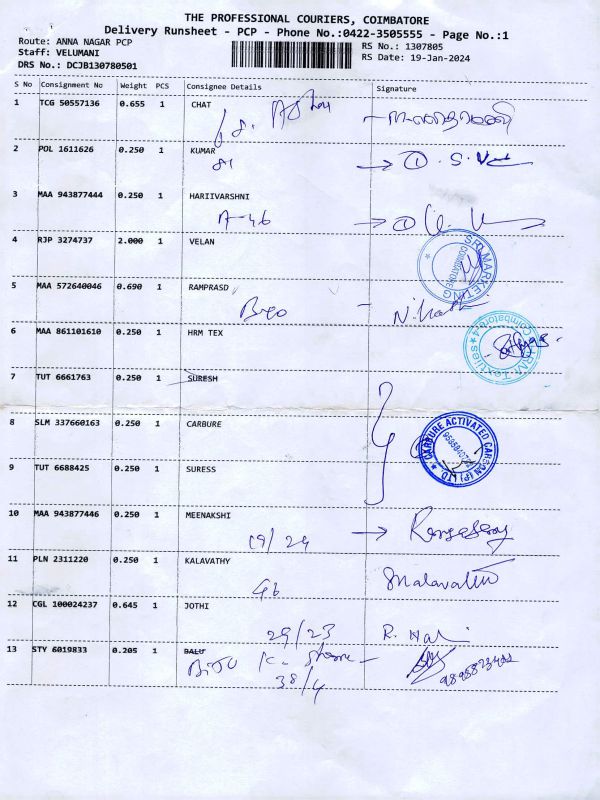 THE PROFESSIONAL COURIERS, COIMBATORE
Delivery Runsheet - PCP - Phone No.:0422-3505555 - Page No.:1
Route: ANNA NAGAR PCP RS No.: 1307805
Staff: VELUMANI RS Date: 19-Jan-2024
DRS No.: DCJB130780501
S No Consignment No Weight PCS Consignee Details Signature
1 TCG 50557136 0.655 1 CHAT
2 POL 1611626 0.250 1 KUMAR
3 MAA 943877444 0.250 1 HARIIVARSHNI
A-46
4 RJP 3274737 2.000 1 VELAN
SFD MARKETING COIMBATORE
5 MAA 572640046 0.690 1 RAMPRASD
6 MAA 861101610 0.250 1 HRM TEX
7 TUT 6661763 0.250 1 SURESH
8 SLM 337660163 0.250 1 CARBURE
CARBURE ACTIVATED CARBON (P) LTD
9 TUT 6688425 0.250 1 SURESS
10 MAA 943877446 0.250 1 MEENAKSHI
19/24
11 PLN 2311220 0.250 1 KALAVATHY
12 CGL 100024237 0.645 1 JOTHI
29/23 R.
13 STY 6019833 0.205 1 BALU
38/4